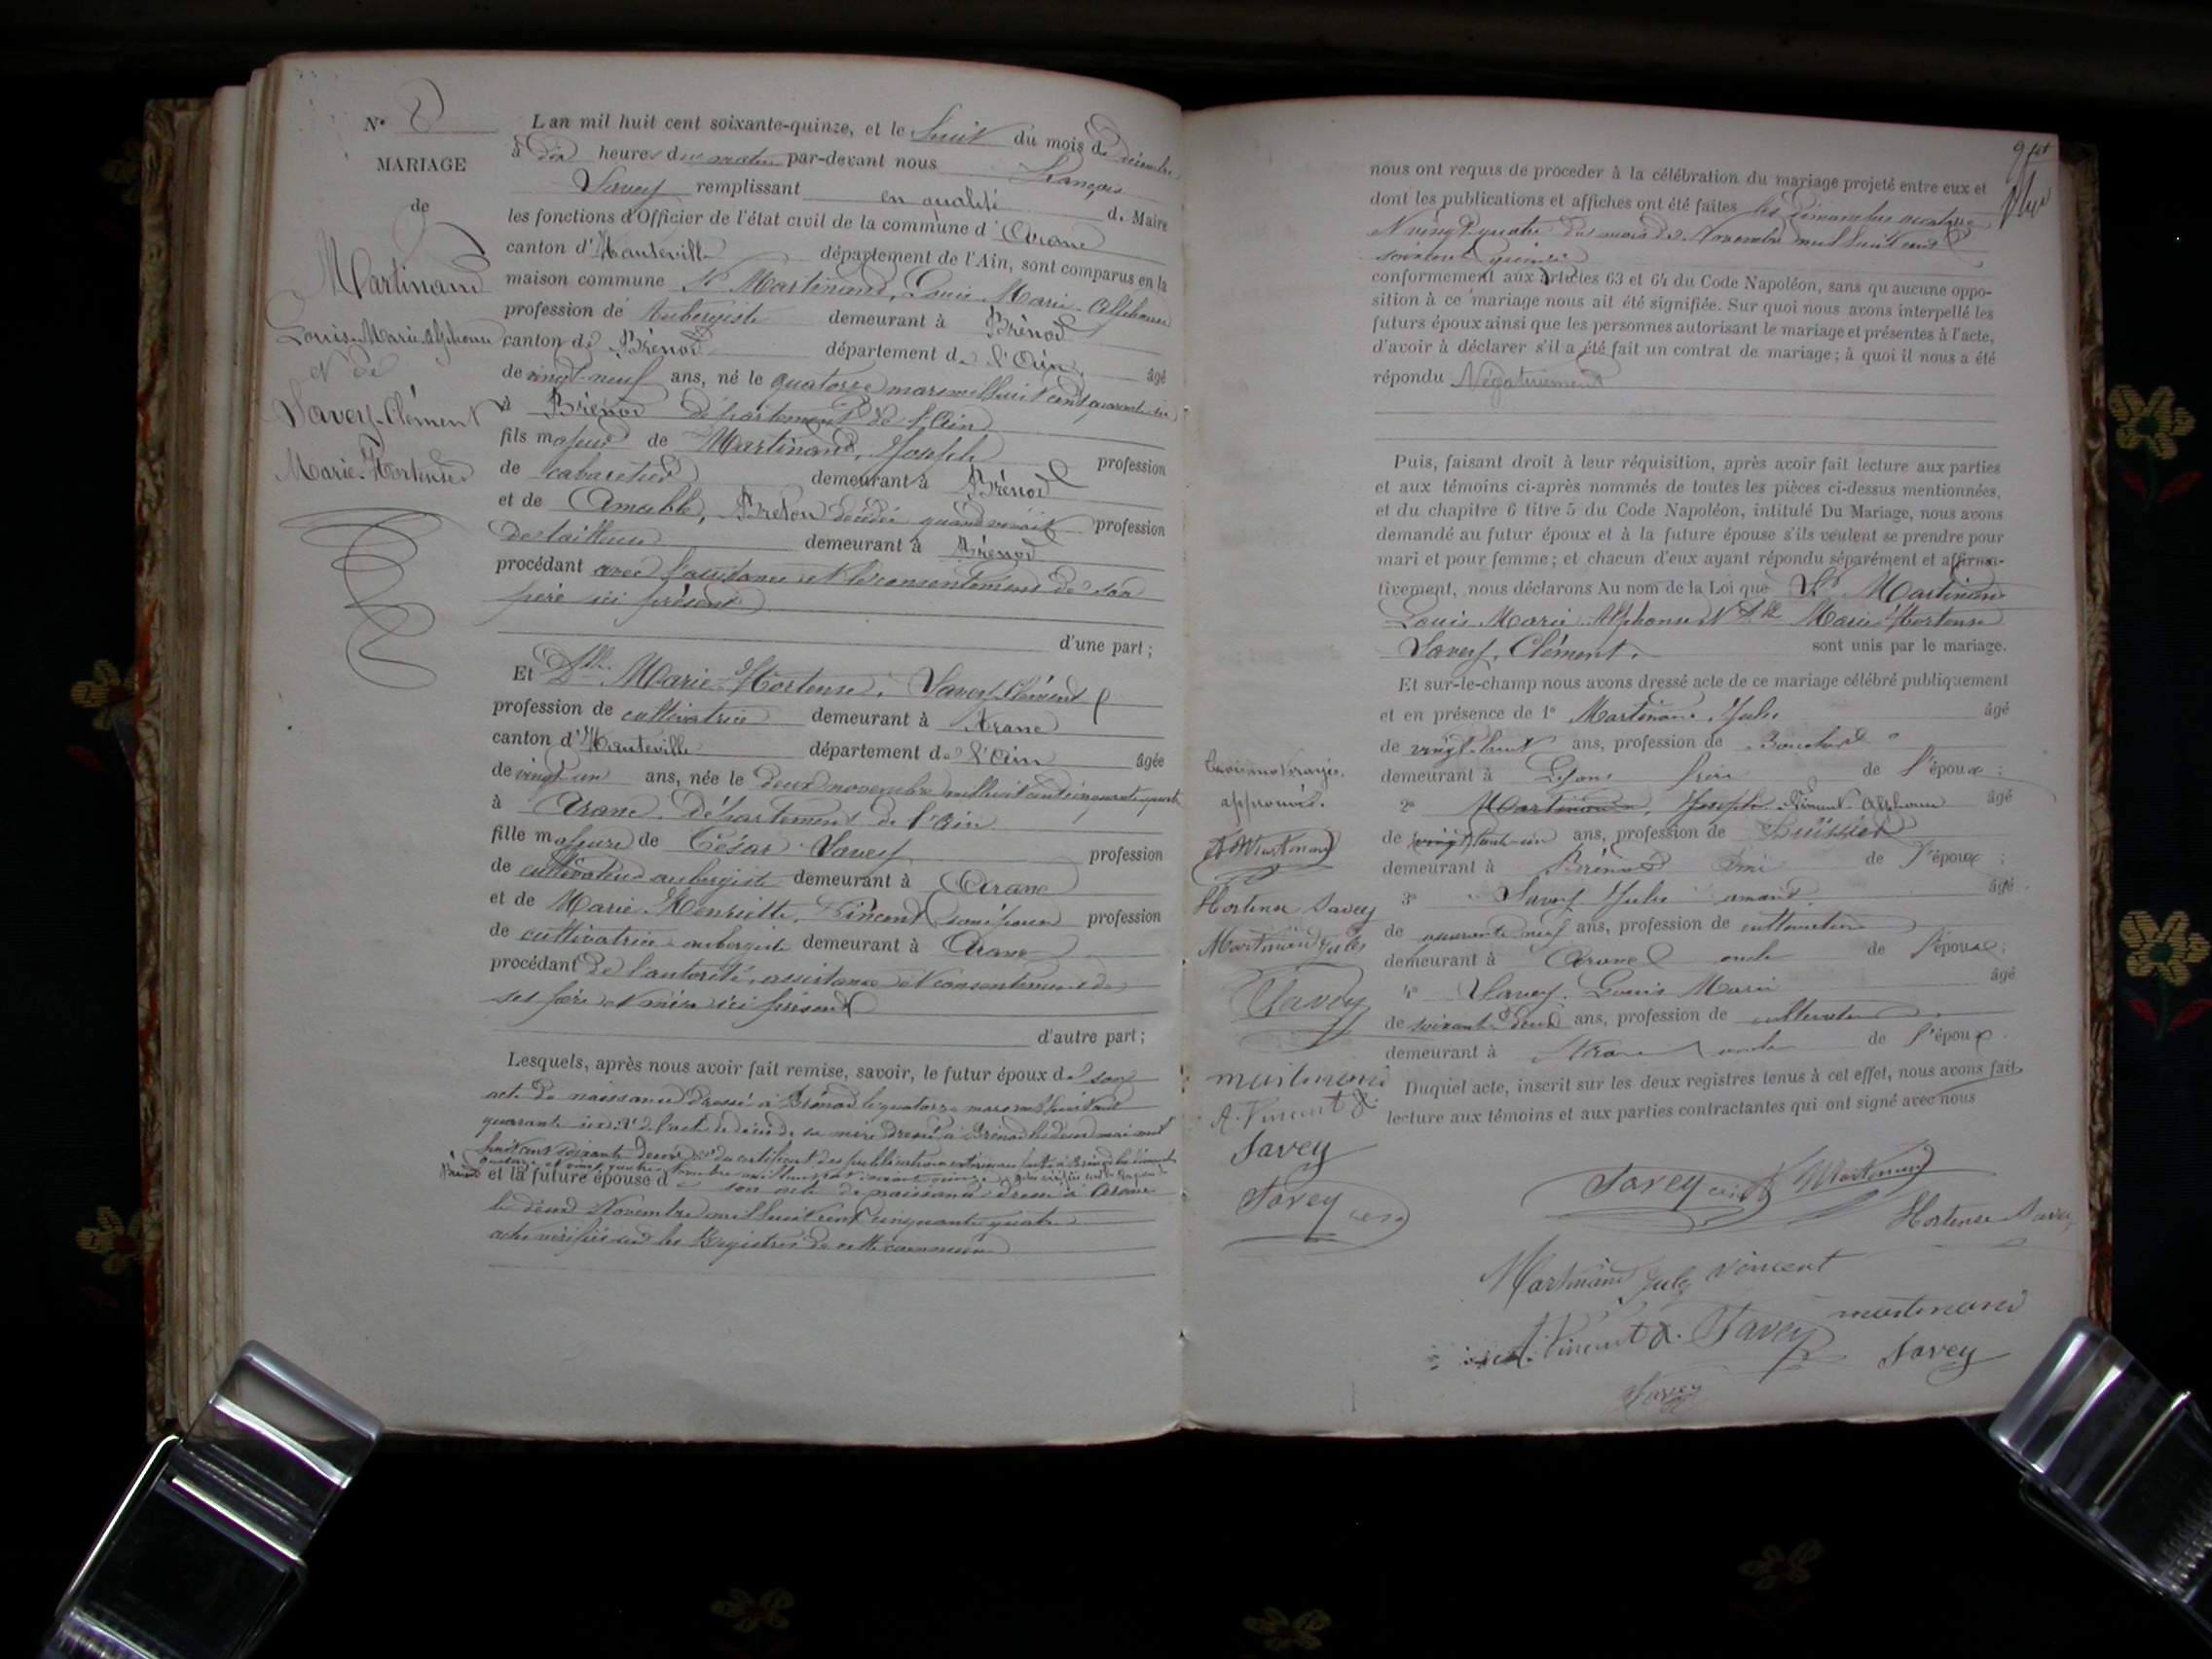 N° 8
MARIAGE
de
Martinand
Louis-Marie-Alphonse
et de
Savey-Clément
Marie-Hortense
L'an mil huit cent soixante-quinze, et le huit du mois de décembre
à dix heures du matin par-devant nous François
Savey remplissant en qualité de Maire
les fonctions d'Officier de l'état civil de la commune d'Aranc
canton d'Hauteville département de l'Ain, sont comparus en la
maison commune Sr Martinand, Louis-Marie-Alphonse
profession de Aubergiste demeurant à Brénod
canton de Brénod département de l'Ain, âgé
de vingt-neuf ans, né le quatorze mars mil huit cent quarante six
à Brénod département de l'Ain
fils majeur de Martinand, Joseph profession
de cabaretier demeurant à Brénod
et de Amable, Breton décédée quand vivait profession
de tailleuse demeurant à Brénod
procédant avec l'assistance et le consentement de son
père ici présent
d'une part ;
Et Dlle Marie-Hortense, Savey-Clément
profession de cultivatrice demeurant à Aranc
canton d'Hauteville département de l'Ain âgée
de vingt-un ans, née le deux novembre mil huit cent cinquante quatre
à Aranc, Département de l'Ain
fille majeure de César Savey profession
de cultivateur aubergiste demeurant à Aranc
et de Marie Henriette, Vincent profession
de cultivatrice aubergiste demeurant à Aranc
procédant de l'autorité, assistance et consentement de
ses père et mère ici présents
d'autre part ;
Lesquels, après nous avoir fait remise, savoir, le futur époux de son
acte de naissance dressé à Brénod le quatorze mars mil huit cent
quarante six; de l'acte de décès de sa mère dressé à Brénod le deux mai mil
huit cent soixante deux du certificat des publications faites à Brénod
et la future épouse de son acte de naissance dressé à Aranc
le deux Novembre mil huit cent cinquante quatre
actes vérifiés sur les Registres de cette commune
nous ont requis de proceder à la célébration du mariage projeté entre eux et
dont les publications et affiches ont été faites les dimanches quatorze
et vingt quatre du mois de Novembre mil huit cent
soixante quinze
conformement aux articles 63 et 64 du Code Napoléon, sans qu'aucune oppo-
sition à ce mariage nous ait été signifiée. Sur quoi nous avons interpellé les
futurs époux ainsi que les personnes autorisant le mariage et présentes à l'acte,
d'avoir à déclarer s'il a été fait un contrat de mariage ; à quoi il nous a été
répondu Négativement
Puis, faisant droit à leur réquisition, après avoir fait lecture aux parties
et aux témoins ci-après nommés de toutes les pièces ci-dessus mentionnées,
et du chapitre 6 titre 5 du Code Napoléon, intitulé Du Mariage, nous avons
demandé au futur époux et à la future épouse s'ils veulent se prendre pour
mari et pour femme ; et chacun d'eux ayant répondu séparément et affirma-
tivement, nous déclarons Au nom de la Loi que Sr Martinand
Louis Marie Alphonse et Dlle Marie Hortense
Savey, Clément, sont unis par le mariage.
Et sur-le-champ nous avons dressé acte de ce mariage célébré publiquement
et en présence de 1° Martinand Jules âgé
de vingt-huit ans, profession de Boucher
demeurant à Lyon frère de l'époux ;
2° Martinand, Joseph Vincent Alphonse âgé
de vingt trente-un ans, profession de Huissier
demeurant à Brénod ami de l'époux ;
3° Savey Jules amand âgé
de quarante neuf ans, profession de cultivateur
demeurant à Aranc oncle de l'épouse ;
4° Savey, Louis Marie âgé
de soixante deux ans, profession de cultivateur
demeurant à Aranc oncle de l'époux.
Duquel acte, inscrit sur les deux registres tenus à cet effet, nous avons fait
lecture aux témoins et aux parties contractantes qui ont signé avec nous
trois mots rayés
approuvés.
A Martinand
Hortense Savey
Martinand Jules
Savey
martinand
A. Vincent
Savey
Savey
Savey A Martinand
Hortense Savey
Martinand Jules Vincent
martinand
A. Vincent Savey
Savey
Savey